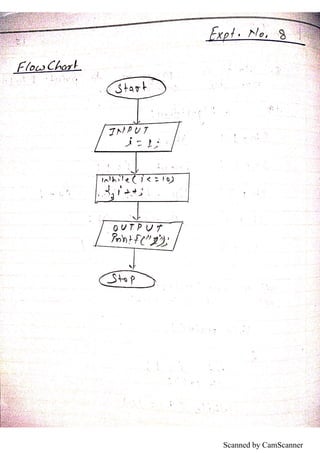 Expt. No. 8
Flow Chart
Start
INPUT
i = 1;
while(i<=10)
{ i++;
OUTPUT
Printf("
Stop
Scanned by CamScanner